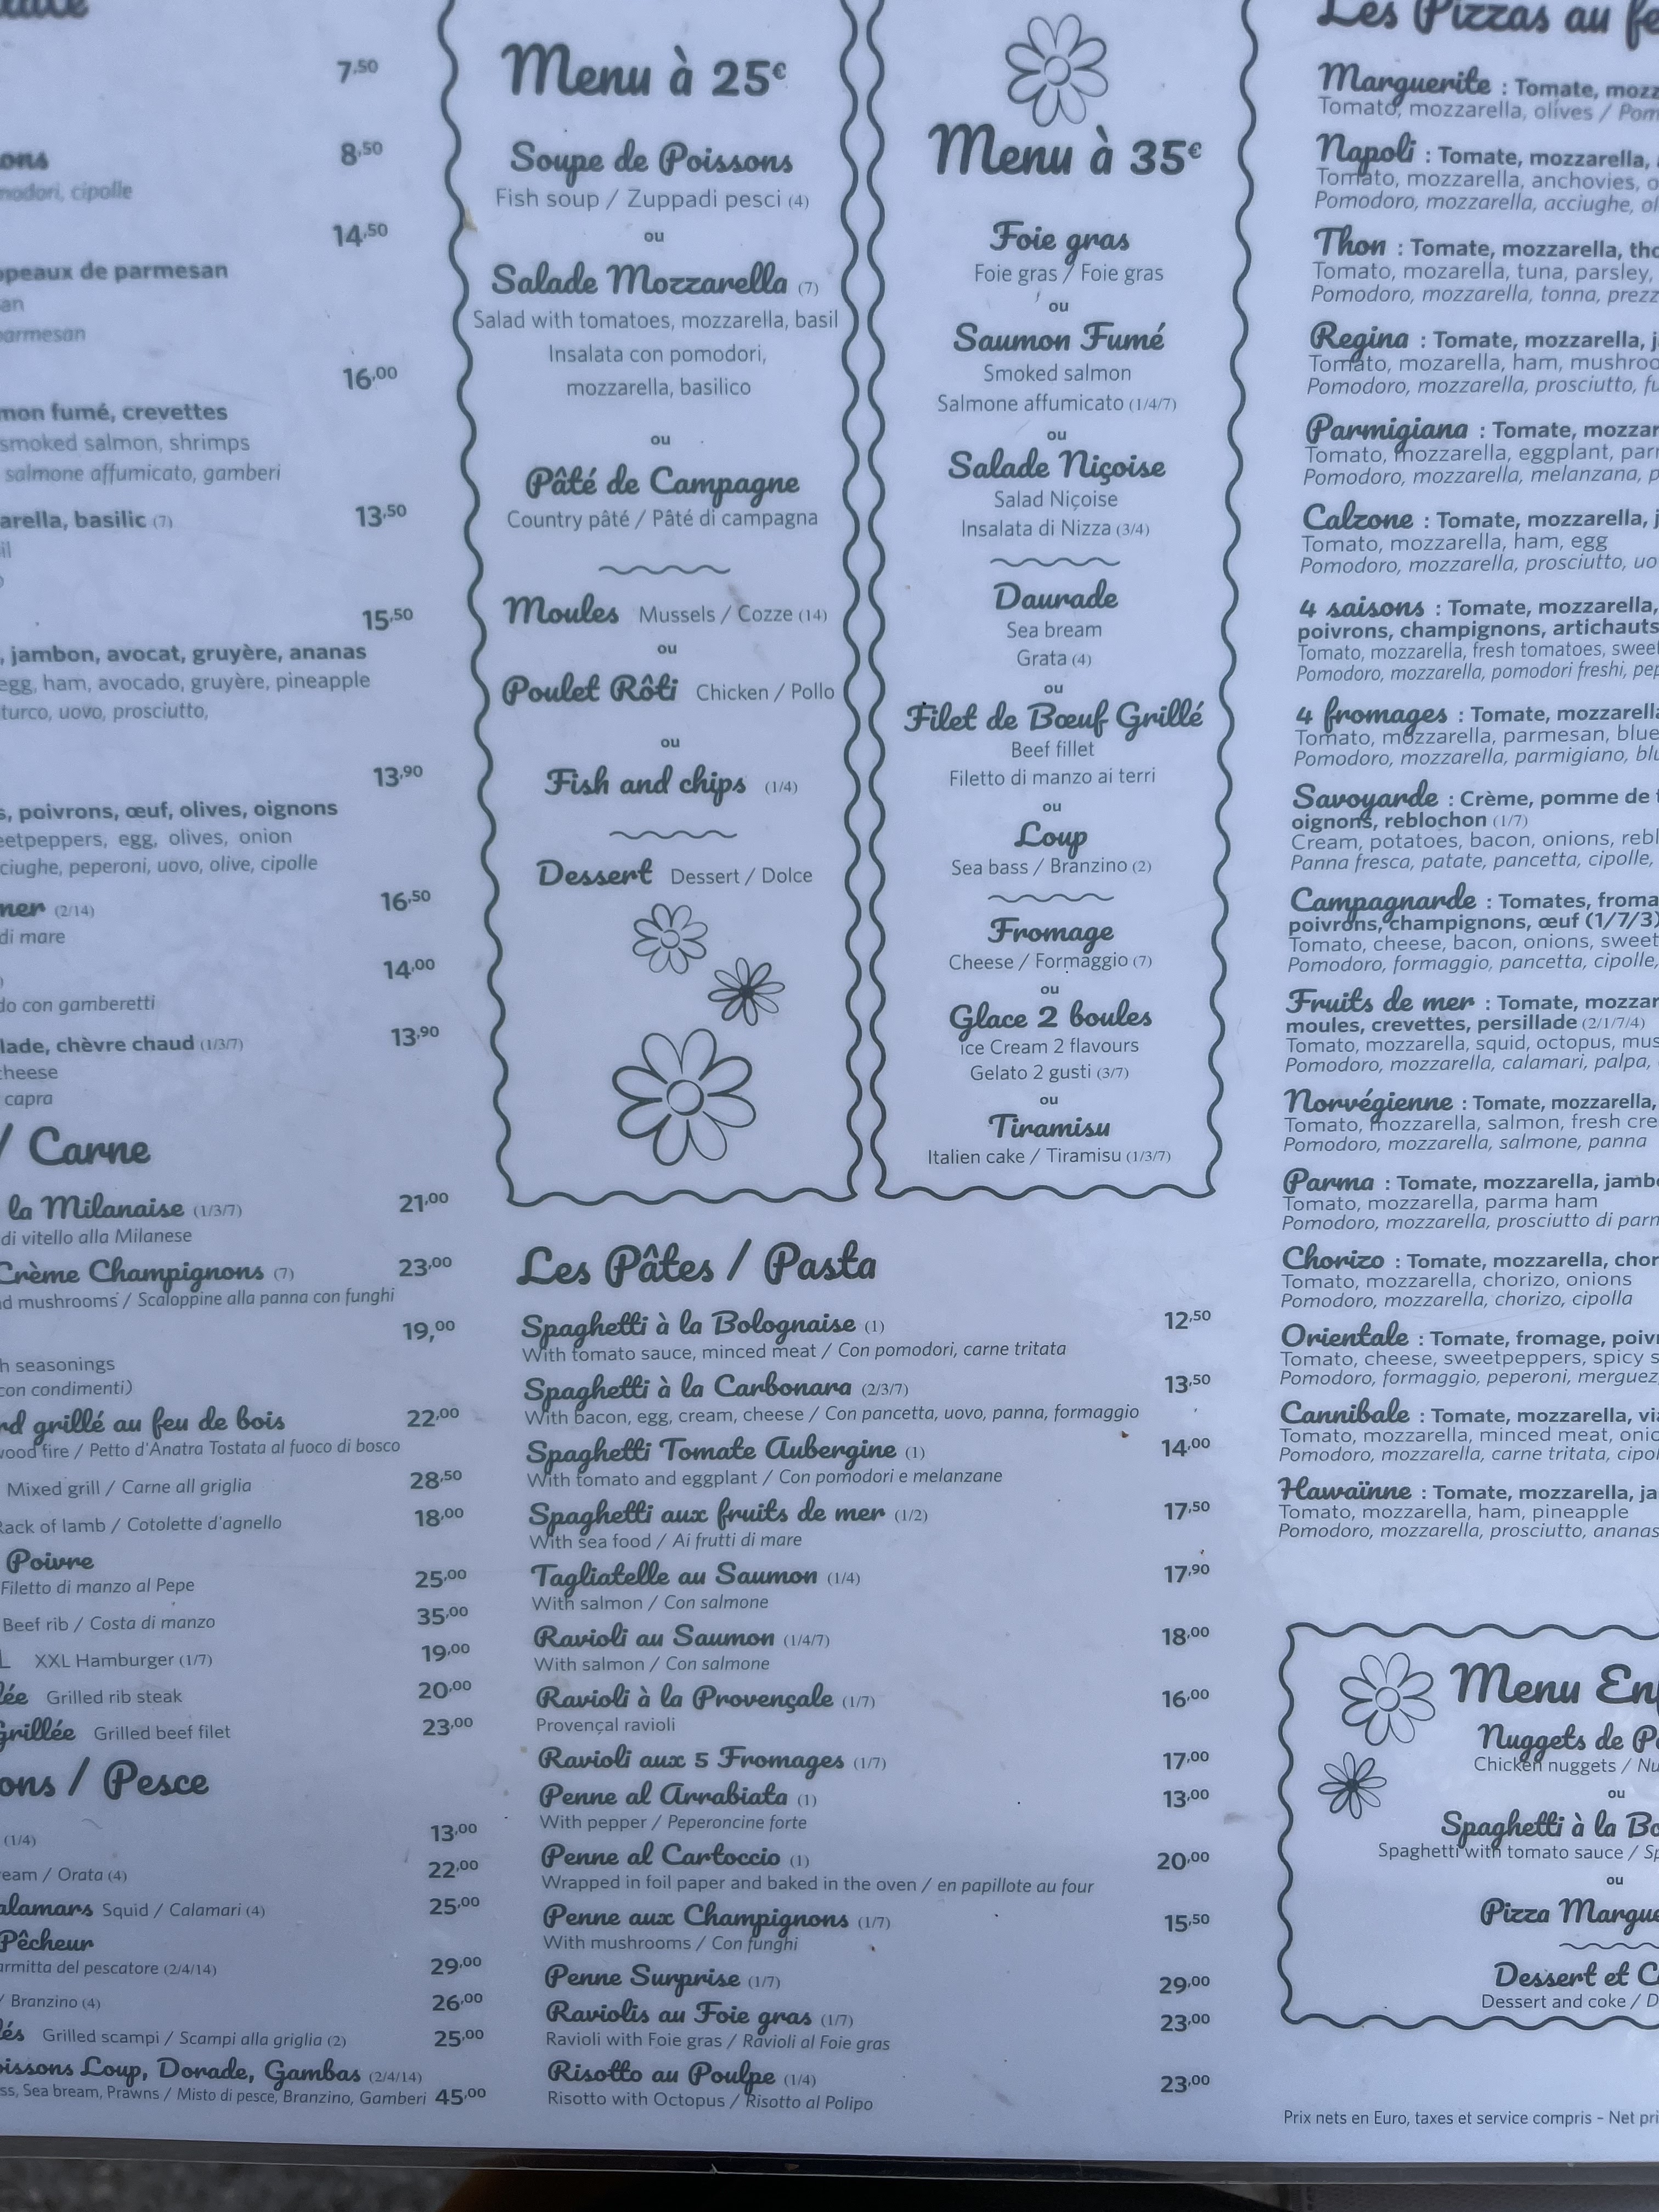 7,50
ons
8,50
modori, cipolle
14,50
opeaux de parmesan
san
parmesan
16,00
mon fumé, crevettes
smoked salmon, shrimps
salmone affumicato, gamberi
arella, basilic (7)
13,50
il
15,50
, jambon, avocat, gruyère, ananas
egg, ham, avocado, gruyère, pineapple
turco, uovo, prosciutto,
13,90
s, poivrons, œuf, olives, oignons
eetpeppers, egg, olives, onion
ciughe, peperoni, uovo, olive, cipolle
mer (2/14)
16,50
di mare
14,00
do con gamberetti
lade, chèvre chaud (1/3/7)
13,90
cheese
capra
/ Carne
la Milanaise (1/3/7)
21,00
di vitello alla Milanese
Crème Champignons (7)
23,00
d mushrooms / Scaloppine alla panna con funghi
19,00
h seasonings
con condimenti)
rd grillé au feu de bois
22,00
wood fire / Petto d'Anatra Tostata al fuoco di bosco
Mixed grill / Carne all griglia
28,50
Rack of lamb / Cotolette d'agnello
18,00
Poivre
Filetto di manzo al Pepe
25,00
Beef rib / Costa di manzo
35,00
L XXL Hamburger (1/7)
19,00
lée Grilled rib steak
20,00
Grillée Grilled beef filet
23,00
ons / Pesce
(1/4)
13,00
eam / Orata (4)
22,00
alamars Squid / Calamari (4)
25,00
Pêcheur
armitta del pescatore (2/4/14)
29,00
/ Branzino (4)
26,00
lés Grilled scampi / Scampi alla griglia (2)
25,00
oissons Loup, Dorade, Gambas (2/4/14)
ss, Sea bream, Prawns / Misto di pesce, Branzino, Gamberi 45,00
Menu à 25€
Soupe de Poissons
Fish soup / Zuppadi pesci (4)
ou
Salade Mozzarella (7)
Salad with tomatoes, mozzarella, basil
Insalata con pomodori,
mozzarella, basilico
ou
Pâté de Campagne
Country pâté / Pâté di campagna
Moules Mussels / Cozze (14)
ou
Poulet Rôti Chicken / Pollo
ou
Fish and chips (1/4)
Dessert Dessert / Dolce
Menu à 35€
Foie gras
Foie gras / Foie gras
ou
Saumon Fumé
Smoked salmon
Salmone affumicato (1/4/7)
ou
Salade Niçoise
Salad Niçoise
Insalata di Nizza (3/4)
Daurade
Sea bream
Grata (4)
ou
Filet de Bœuf Grillé
Beef fillet
Filetto di manzo ai terri
ou
Loup
Sea bass / Branzino (2)
Fromage
Cheese / Formaggio (7)
ou
Glace 2 boules
ice Cream 2 flavours
Gelato 2 gusti (3/7)
ou
Tiramisu
Italien cake / Tiramisu (1/3/7)
Les Pâtes / Pasta
Spaghetti à la Bolognaise (1)
12,50
With tomato sauce, minced meat / Con pomodori, carne tritata
Spaghetti à la Carbonara (2/3/7)
13,50
With bacon, egg, cream, cheese / Con pancetta, uovo, panna, formaggio
Spaghetti Tomate Aubergine (1)
14,00
With tomato and eggplant / Con pomodori e melanzane
Spaghetti aux fruits de mer (1/2)
17,50
With sea food / Ai frutti di mare
Tagliatelle au Saumon (1/4)
17,90
With salmon / Con salmone
Ravioli au Saumon (1/4/7)
18,00
With salmon / Con salmone
Ravioli à la Provençale (1/7)
16,00
Provençal ravioli
Ravioli aux 5 Fromages (1/7)
17,00
Penne al Arrabiata (1)
13,00
With pepper / Peperoncine forte
Penne al Cartoccio (1)
20,00
Wrapped in foil paper and baked in the oven / en papillote au four
Penne aux Champignons (1/7)
15,50
With mushrooms / Con funghi
Penne Surprise (1/7)
29,00
Raviolis au Foie gras (1/7)
23,00
Ravioli with Foie gras / Ravioli al Foie gras
Risotto au Poulpe (1/4)
23,00
Risotto with Octopus / Risotto al Polipo
Les Pizzas au fe
Marguerite : Tomate, mozz
Tomato, mozzarella, olives / Pom
Napoli : Tomate, mozzarella,
Tomato, mozzarella, anchovies, o
Pomodoro, mozzarella, acciughe, ol
Thon : Tomate, mozzarella, tho
Tomato, mozarella, tuna, parsley,
Pomodoro, mozzarella, tonna, prezz
Regina : Tomate, mozzarella, j
Tomato, mozarella, ham, mushroo
Pomodoro, mozzarella, prosciutto, fu
Parmigiana : Tomate, mozzar
Tomato, mozzarella, eggplant, parr
Pomodoro, mozzarella, melanzana, p
Calzone : Tomate, mozzarella, j
Tomato, mozzarella, ham, egg
Pomodoro, mozzarella, prosciutto, uo
4 saisons : Tomate, mozzarella,
poivrons, champignons, artichauts
Tomato, mozzarella, fresh tomatoes, sweet
Pomodoro, mozzarella, pomodori freshi, pep
4 fromages : Tomate, mozzarella
Tomato, mozzarella, parmesan, blue
Pomodoro, mozzarella, parmigiano, blu
Savoyarde : Crème, pomme de t
oignons, reblochon (1/7)
Cream, potatoes, bacon, onions, rebl
Panna fresca, patate, pancetta, cipolle,
Campagnarde : Tomates, froma
poivrons, champignons, œuf (1/7/3)
Tomato, cheese, bacon, onions, sweet
Pomodoro, formaggio, pancetta, cipolle,
Fruits de mer : Tomate, mozzar
moules, crevettes, persillade (2/1/7/4)
Tomato, mozzarella, squid, octopus, mus
Pomodoro, mozzarella, calamari, palpa,
Norvégienne : Tomate, mozzarella,
Tomato, mozzarella, salmon, fresh cre
Pomodoro, mozzarella, salmone, panna
Parma : Tomate, mozzarella, jambo
Tomato, mozzarella, parma ham
Pomodoro, mozzarella, prosciutto di parm
Chorizo : Tomate, mozzarella, chor
Tomato, mozzarella, chorizo, onions
Pomodoro, mozzarella, chorizo, cipolla
Orientale : Tomate, fromage, poivr
Tomato, cheese, sweetpeppers, spicy s
Pomodoro, formaggio, peperoni, merguez
Cannibale : Tomate, mozzarella, via
Tomato, mozzarella, minced meat, onio
Pomodoro, mozzarella, carne tritata, cipol
Hawaïnne : Tomate, mozzarella, ja
Tomato, mozzarella, ham, pineapple
Pomodoro, mozzarella, prosciutto, ananas
Menu Enf
Nuggets de Po
Chicken nuggets / Nu
ou
Spaghetti à la Bo
Spaghetti with tomato sauce / Sp
ou
Pizza Margue
Dessert et C
Dessert and coke / D
Prix nets en Euro, taxes et service compris - Net pri